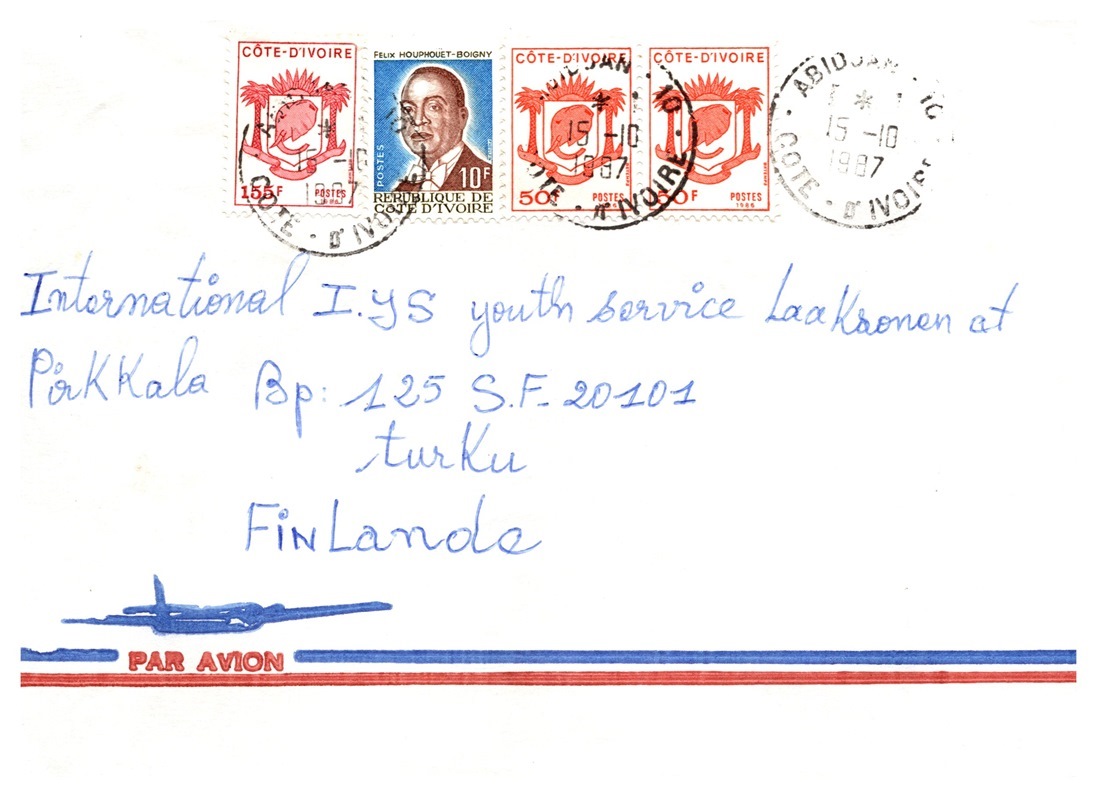 CÔTE-D'IVOIRE
155F
POSTES
FELIX HOUPHOUET-BOIGNY
POSTES
10F
REPUBLIQUE DE
CÔTE D'IVOIRE
CÔTE-D'IVOIRE
50F
POSTES
CÔTE-D'IVOIRE
50F
POSTES
1986
15-10
1987
COTE · D'IVOIRE
ABIDJAN · 10 ·
15-10
1987
COTE · D'IVOIRE
ABIDJAN · 10
15-10
1987
COTE · D'IVOIRE
International I.YS youth service Laaksonen at
Pirkkala Bp: 125 S.F- 20101
turKu
FiNLande
PAR AVION